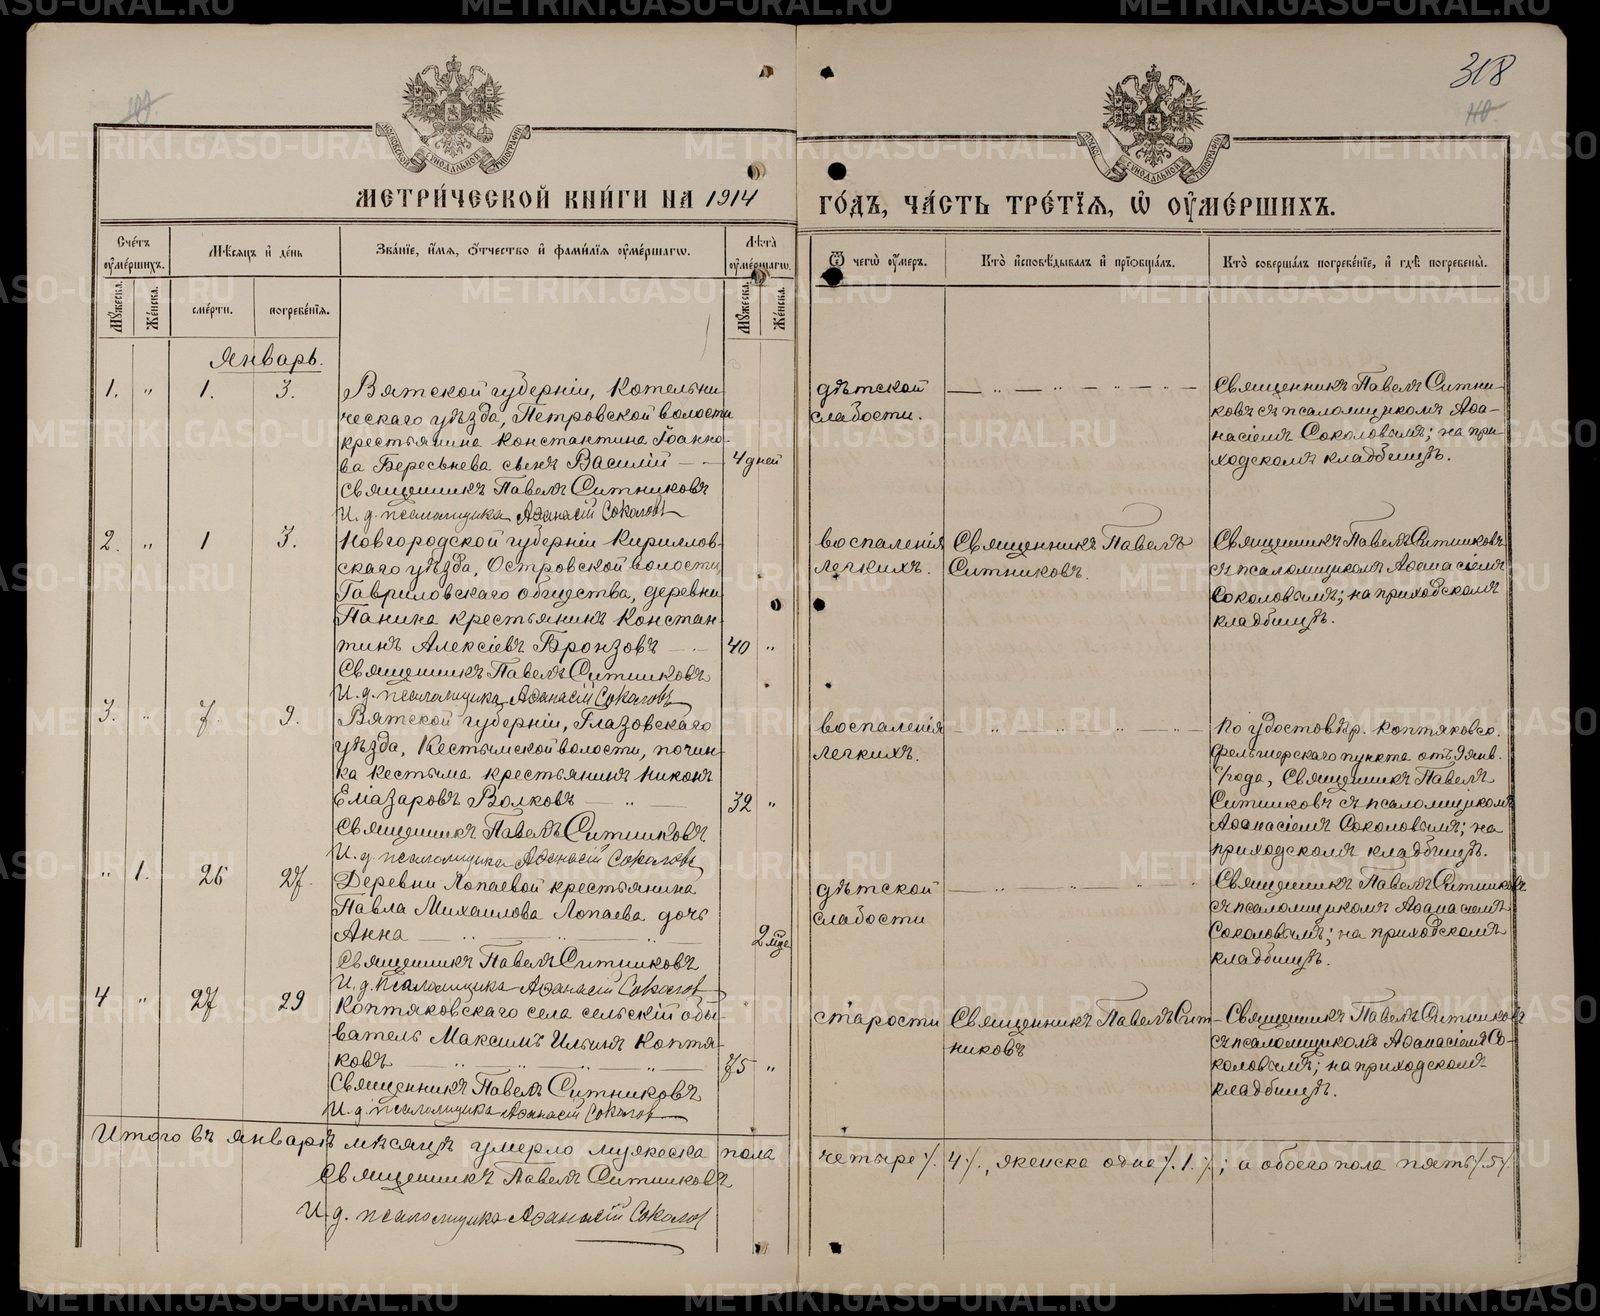 METRIKI.GASO-URAL.RU
318
МОСКОВСКОЙ СѴНОДАЛЬНОЙ ТИПОГРАФІИ
МЕТРИ́ЧЕСКОЙ КНИ́ГИ НА 1914 ГО́ДЪ, ЧА́СТЬ ТРЕ́ТЇѦ, Ѡ҆ ОУ҆МЕ́РШИХЪ.
Сче́тъ оу҆ме́ршихъ.
Мѣ́сяцъ и҆ де́нь
Зва́ніе, и҆́мя, ѻ҆́тчество и҆ фами́лія оу҆ме́ршагѡ.
Лѣ́та оу҆ме́ршагѡ.
Ѿ чегѡ̀ оу҆́меръ.
Кто̀ и҆сповѣ́дывалъ и҆ пріѡбща́лъ.
Кто̀ соверша́лъ погребе́ніе, и҆ гдѣ̀ погребены̀.
Му́жеска.
Же́нска.
сме́рти.
погребе́нія.
Му́жеска.
Же́нска.
Январь.
1. " 1. 3.
Вятской губерніи, Котельни-
ческаго уѣзда, Петровской волости
крестьянина Константина Іоанно-
ва Береснева сынъ Василій 4 дней
Священникъ Павелъ Ситниковъ
И. д. псаломщика Аѳанасій Соколовъ
дѣтской
слабости.
Священникъ Павелъ Ситни-
ковъ съ псаломщикомъ Аѳа-
насіемъ Соколовымъ; на при-
ходскомъ кладбищѣ.
2. " 1 3.
Новгородской губерніи Кириллов-
скаго уѣзда, Островской волости,
Гавриловскаго общества, деревни
Панина крестьянинъ Констан-
тинъ Алексіевъ Бронзовъ 40 "
Священникъ Павелъ Ситниковъ
И. д. псаломщика Аѳанасій Соколовъ
воспаленія
легкихъ.
Священникъ Павелъ
Ситниковъ.
Священникъ Павелъ Ситниковъ
съ псаломщикомъ Аѳанасіемъ
Соколовымъ; на приходскомъ
кладбищѣ.
3. " 7. 9.
Вятской губерніи, Глазовскаго
уѣзда, Кестымской волости, почин-
ка Кестыма крестьянинъ Никонъ
Еліазаровъ Волковъ 32 "
Священникъ Павелъ Ситниковъ
И. д. псаломщика Аѳанасій Соколовъ
воспаленія
легкихъ.
По удостовѣр. Коптяковско.
фельшерскаго пункта отъ 9 янв.
с/года, Священникъ Павелъ
Ситниковъ съ псаломщикомъ
Аѳанасіемъ Соколовымъ; на
приходскомъ кладбищѣ.
" 1. 26 27.
Деревни Лопаевой крестьянина
Павла Михаилова Лопаева дочь
Анна 2 мѣс
Священникъ Павелъ Ситниковъ
И. д. Псаломщика Аѳанасій Соколов
дѣтской
слабости
Священникъ Павелъ Ситниковъ
съ псаломщикомъ Аѳанасіемъ
Соколовымъ; на приходскомъ
кладбищѣ.
4 " 27 29
Коптяковскаго села сельскій обы-
ватель Максимъ Ильинъ Коптя-
ковъ 75 "
Священникъ Павелъ Ситниковъ
И. д. псаломщика Аѳанасій Соколов
старости
Священникъ Павелъ Сит-
никовъ
Священникъ Павелъ Ситниковъ
съ псаломщикомъ Аѳанасіемъ Со-
коловымъ; на приходскомъ
кладбищѣ.
Итого въ январѣ мѣсяцѣ умерло мужеска пола четыре ·/. 4 ·/., женска одна ·/. 1. ·/.; а обоего пола пять ·/. 5 ·/.
Священникъ Павелъ Ситниковъ
И. д. псаломщика Аѳанасій Соколов